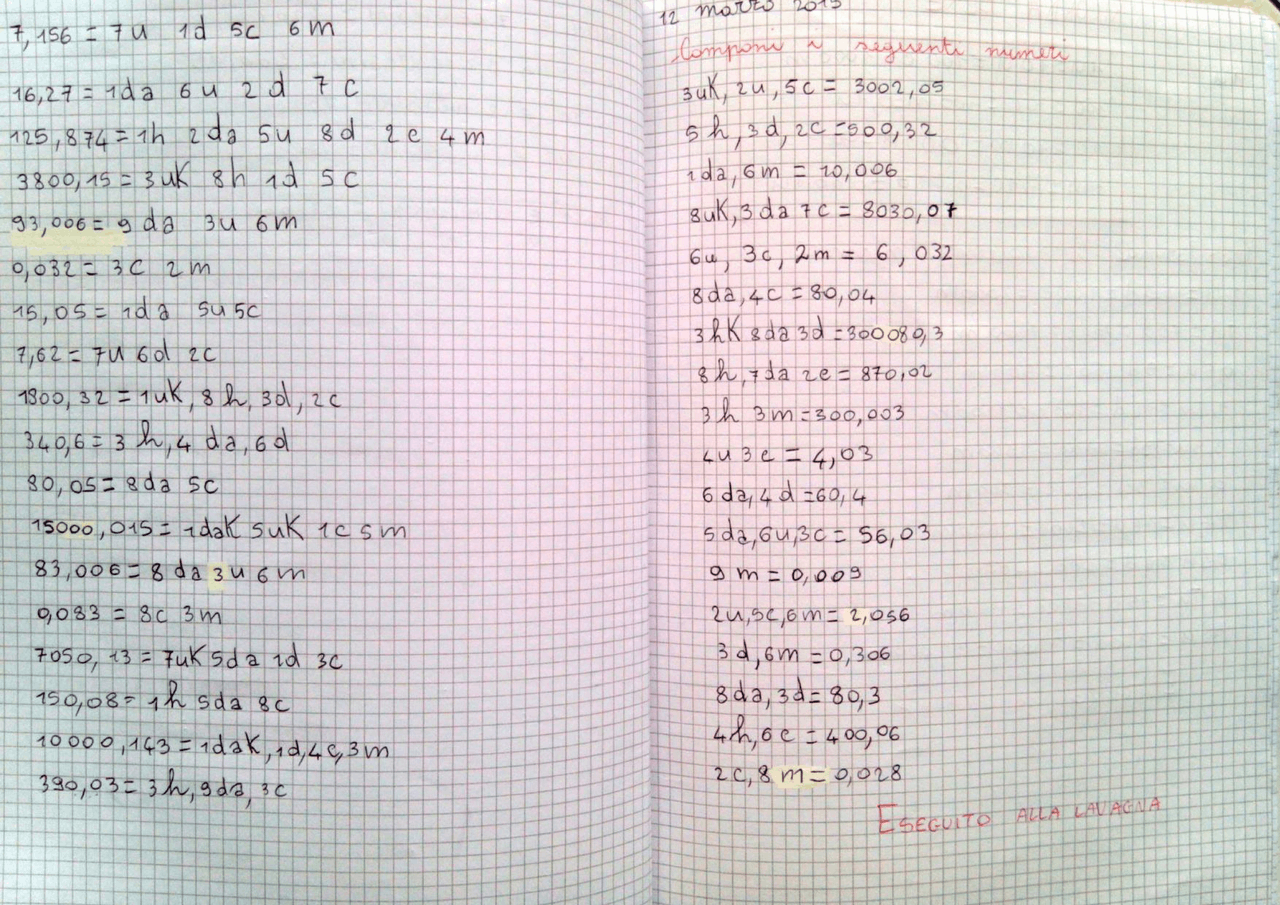 7,156 = 7u 1d 5c 6m
16,27 = 1da 6u 2d 7c
125,874 = 1h 2da 5u 8d 2c 4m
3800,15 = 3uK 8h 1d 5c
93,006 = 9da 3u 6m
0,032 = 3c 2m
15,05 = 1da 5u 5c
7,62 = 7u 6d 2c
1800,32 = 1uK, 8h, 3d, 2c
340,6 = 3h, 4da, 6d
80,05 = 8da 5c
15000,015 = 1daK 5uK 1c 5m
83,006 = 8da 3u 6m
0,083 = 8c 3m
7050,13 = 7uK 5da 1d 3c
150,08 = 1h 5da 8c
10000,143 = 1daK, 1d, 4c, 3m
390,03 = 3h, 9da, 3c
12 marzo 2015
Componi i seguenti numeri
3uK, 2u, 5c = 3002,05
5h, 3d, 2c = 500,32
1da, 6m = 10,006
8uK, 3da 7c = 8030,07
6u, 3c, 2m = 6,032
8da, 4c = 80,04
3hK 8da 3d = 300080,3
8h, 7da 2c = 870,02
3h 3m = 300,003
4u 3c = 4,03
6da, 4d = 60,4
5da, 6u, 3c = 56,03
9m = 0,009
2u, 5c, 6m = 2,056
3d, 6m = 0,306
8da, 3d = 80,3
4h, 6c = 400,06
2c, 8m = 0,028
ESEGUITO ALLA LAVAGNA